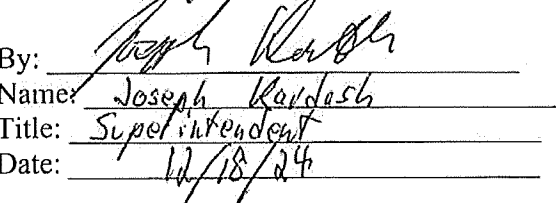 By: Joseph Kardash
Name: Joseph Kardash
Title: Superintendent
Date: 12/18/24